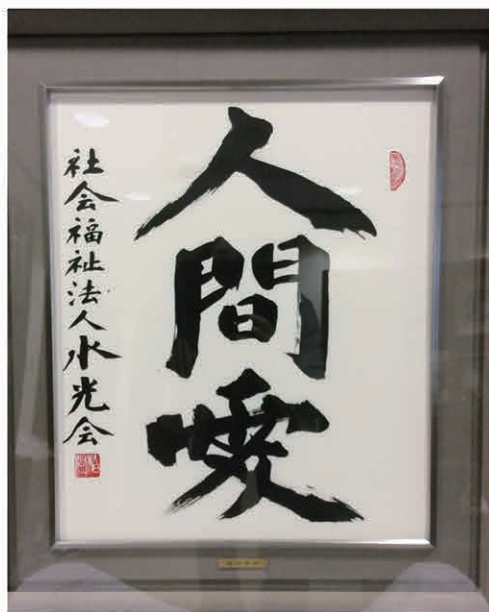 人間愛
社会福祉法人水光会